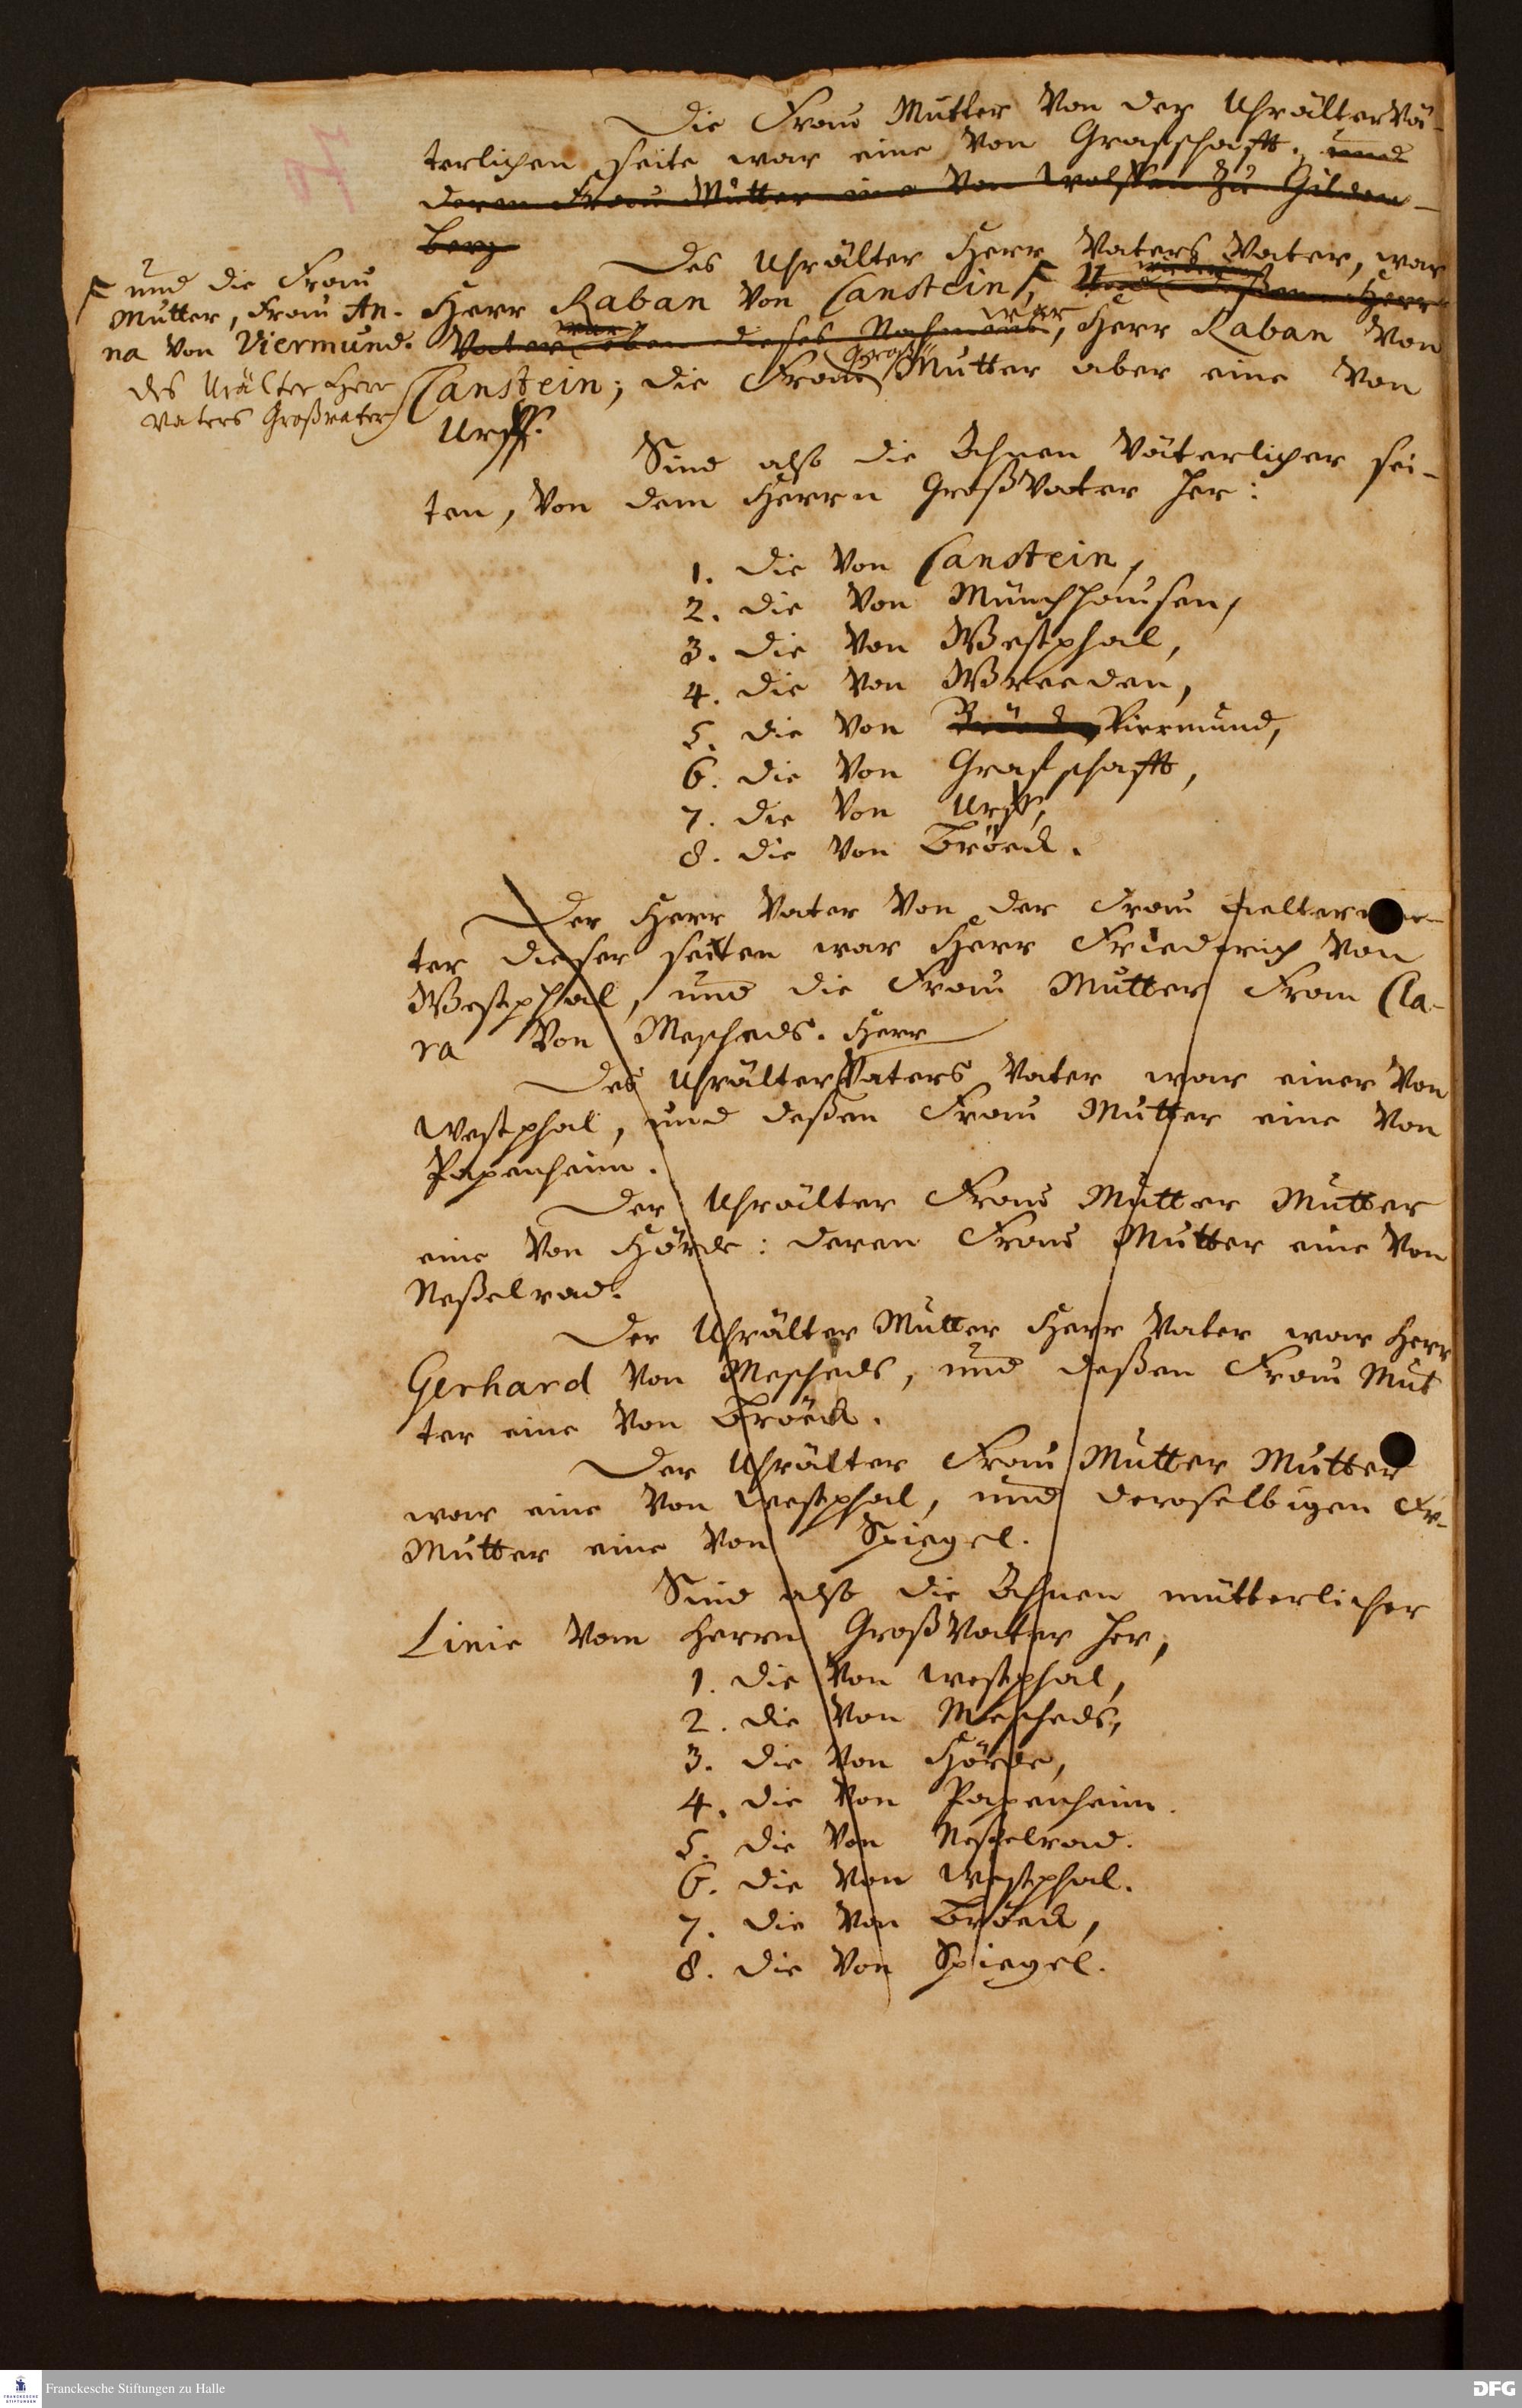 Die Frau Mutter von der UhrälterVä-
terlichen seite war eine von Grafschafft. und
deren Frau Mutter eine von Wolffen zu Güden-
berg
Des Uhrälter Herr Vaters Vater, war
Herr Raban von Canstein, Herr
Vater eben dieses Nahmens war, Herr Raban von
Canstein; die Frau Groß Mutter aber eine von
Urff.
und die Frau
Mutter, Frau An-
na von Viermund.
des Urälter Herr
Vaters Großvater
Sind also die Ahnen Väterlicher sei-
ten, von dem Herrn GroßVater her:
1. die von Canstein,
2. die von Münchhausen,
3. die von Westphal,
4. die von Wreeden,
5. die von Viermund,
6. die von Grafschafft,
7. die von Urff,
8. die von Bröeck.
Der Herr Vater von der Frau
ter dieser seiten war Herr Friedrich von
Westphal, und die Frau Mutter Frau Cla-
ra von Meschede. Herr
Des UhrälterVaters Vater war einer von
Westphal, und deßen Frau Mutter eine von
Papenheim.
Der Uhrälter Frau Mutter Mutter
eine von Hörde: deren Frau Mutter eine von
Neßelrad.
Der Uhrälter Mutter Herr Vater war Herr
Gerhard von Meschede, und deßen Frau Mut
ter eine von Bröeck.
Der Uhrälter Frau Mutter Mutter
war eine von Westphal, und deroselbigen Fr-
Mutter eine von Spiegel.
Sind also die Ahnen mütterlicher
Linie vom Herrn GroßVater her,
1. die von Westphal,
2. die von Meschede,
3. die von Hörde,
4. die von Papenheim.
5. die von Neßelrad.
6. die von Westphal.
7. die von Bröeck,
8. die von Spiegel.
Franckesche Stiftungen zu Halle
DFG